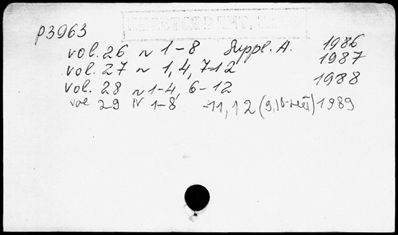 P3963
vol. 26 N 1-8 Suppl. A. 1986
vol. 27 N 1, 4, 7-12 1987
vol. 28 N 1-4, 6-12 1988
vol 29 N 1-8 -11, 12 (9,10- ) 1989